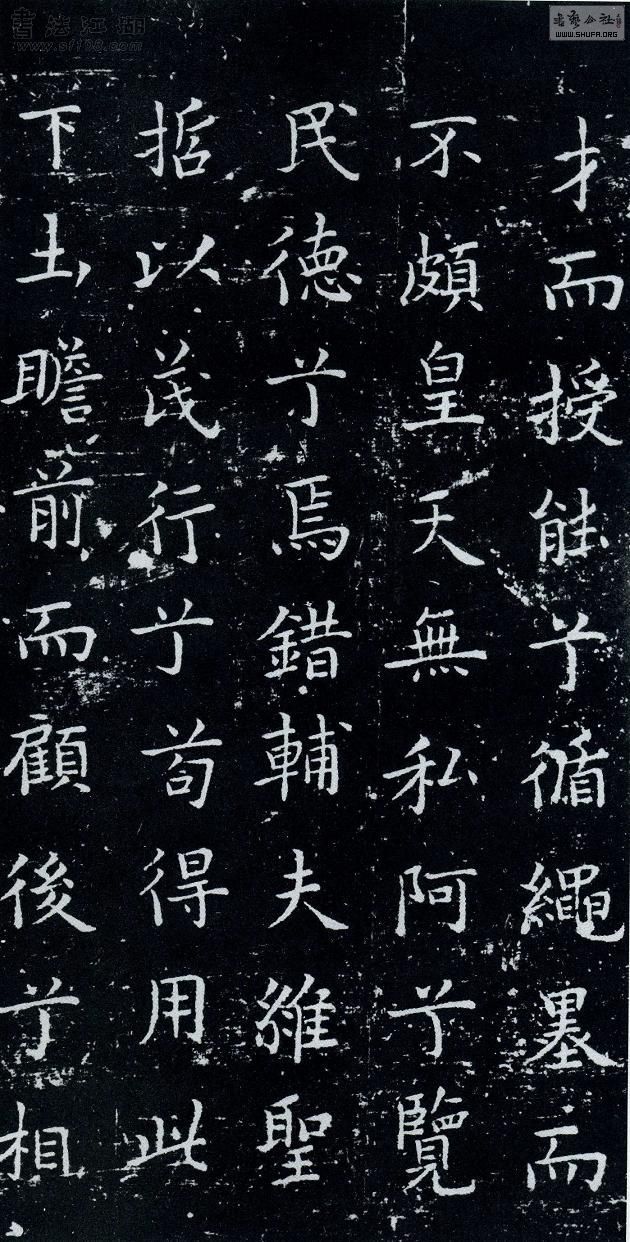 才而授能兮循繩墨而
不頗皇天無私阿兮覽
民德兮焉錯輔夫維聖
哲以茂行兮苟得用此
下土瞻前而顧後兮相
書法江湖
www.sf108.com
書藝公社
WWW.SHUFA.ORG